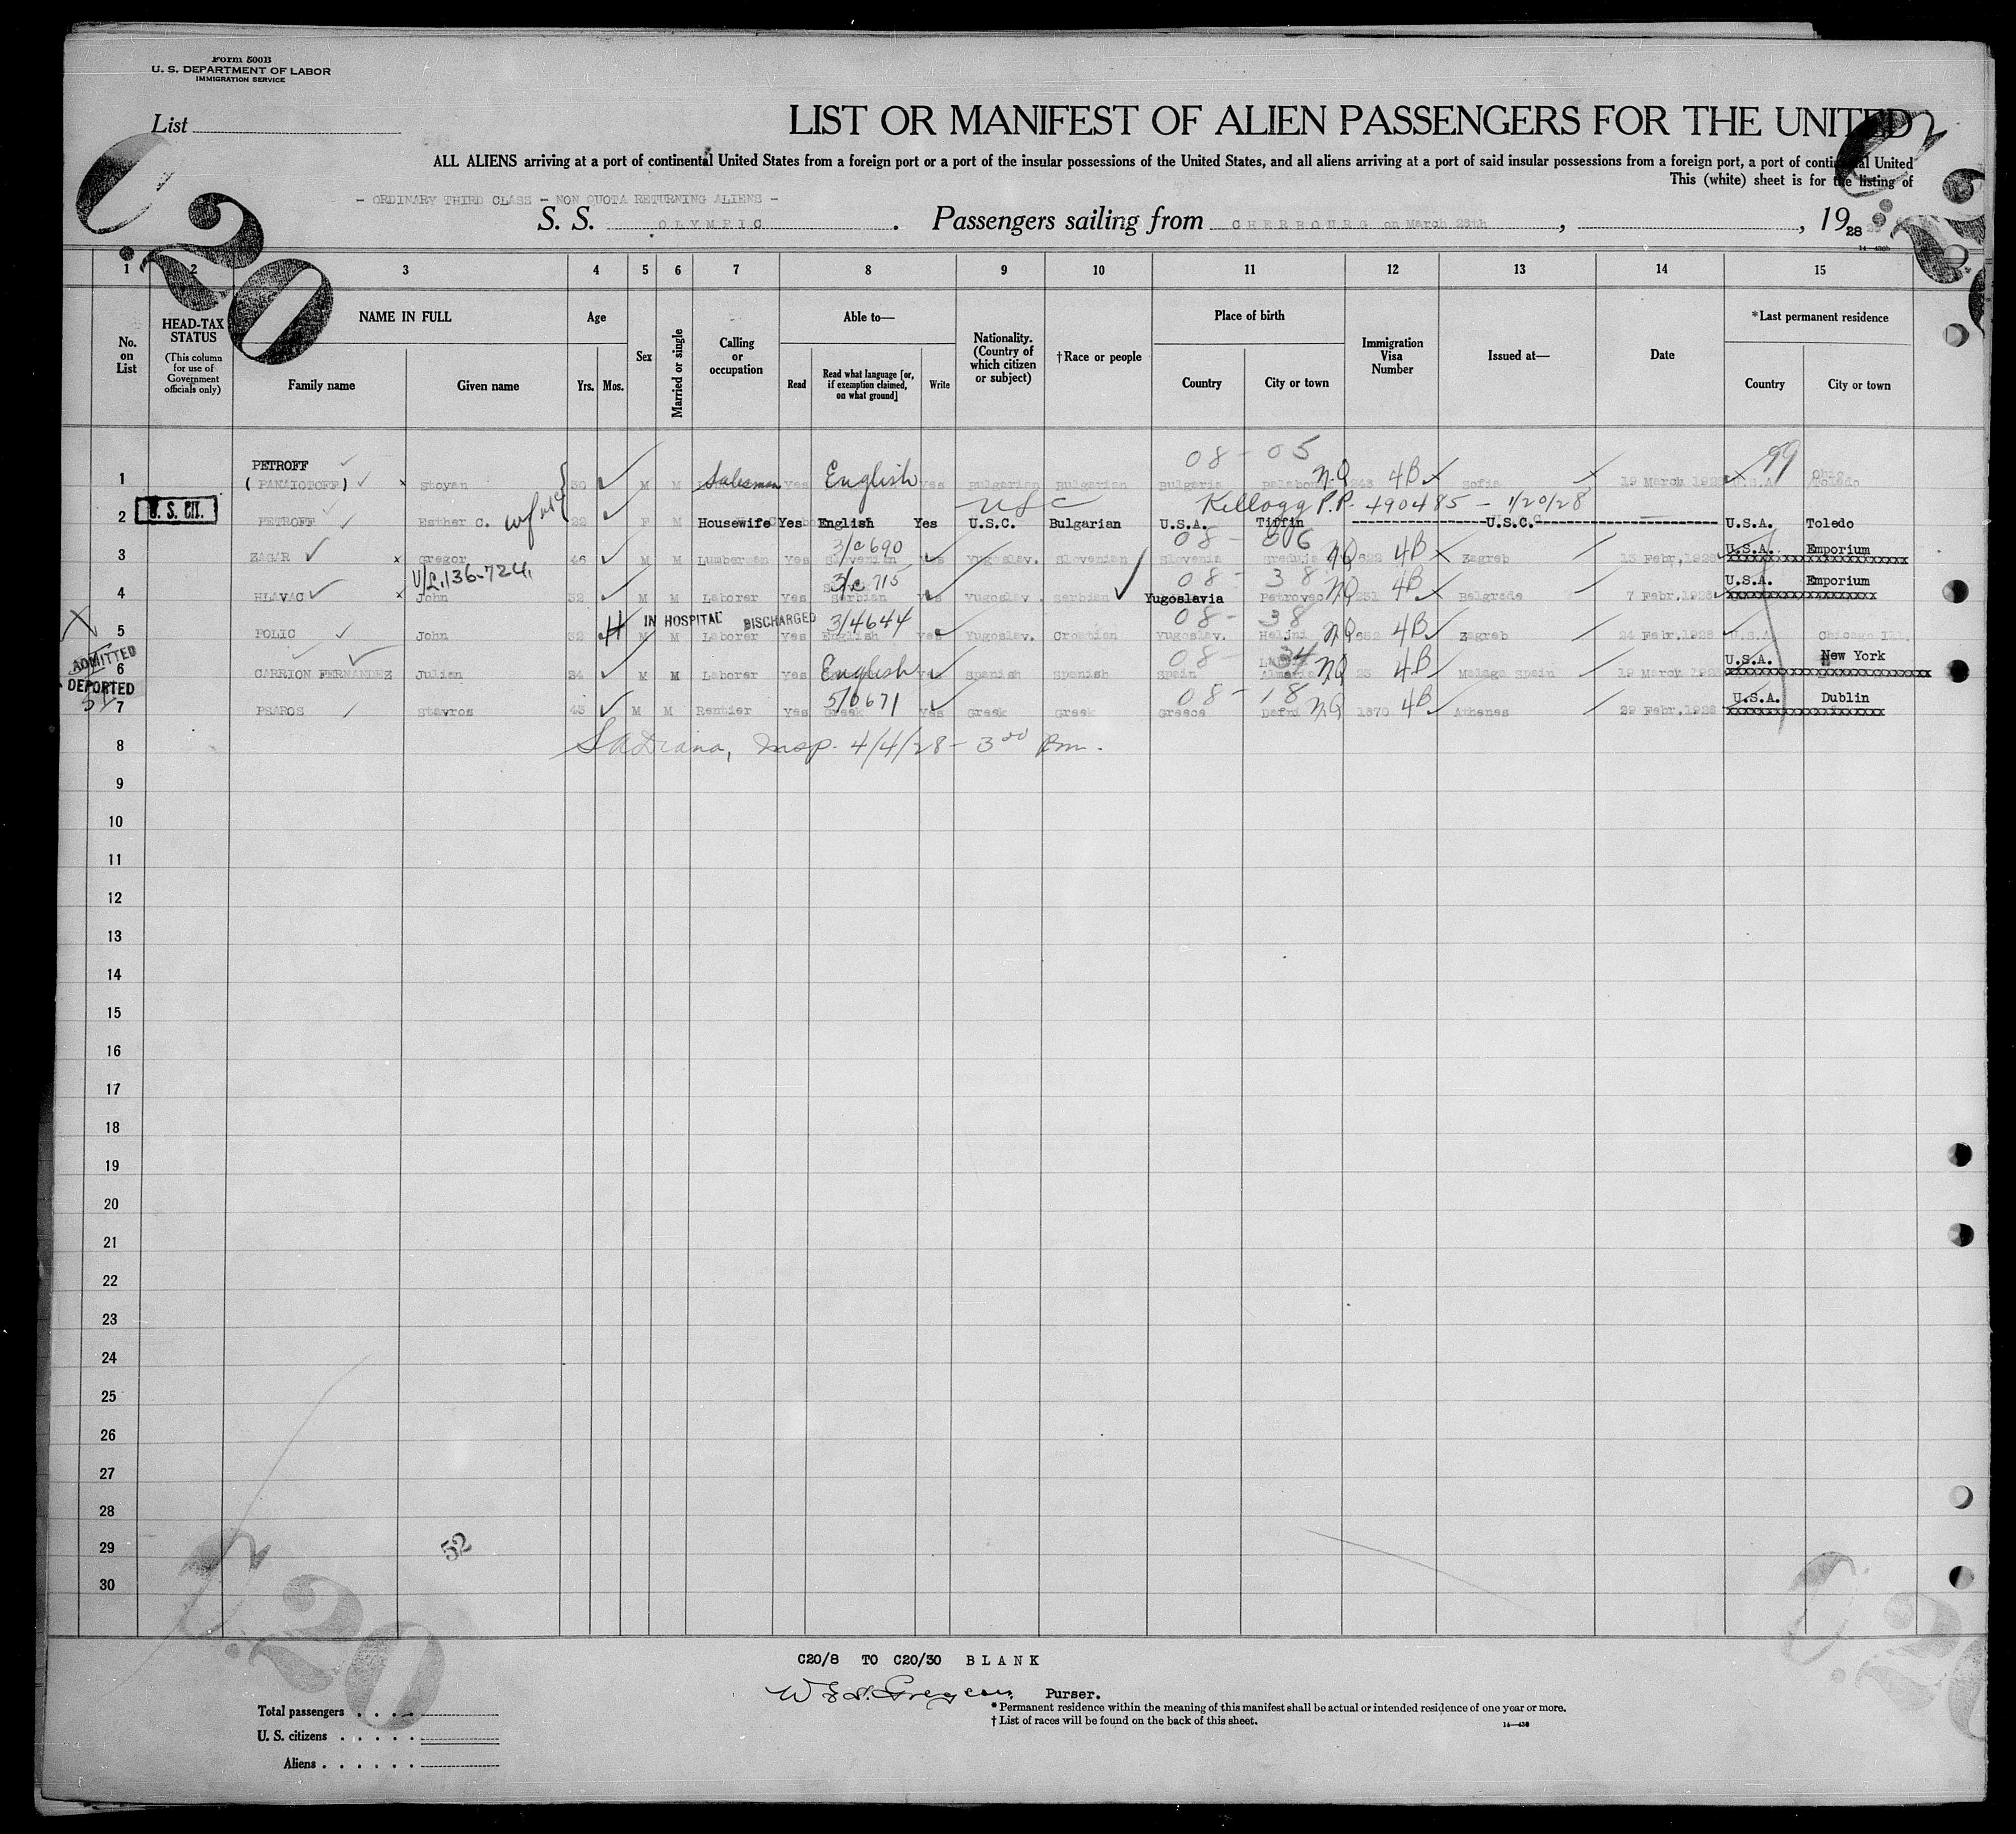 Form 500B
U. S. DEPARTMENT OF LABOR
IMMIGRATION SERVICE
List
LIST OR MANIFEST OF ALIEN PASSENGERS FOR THE UNITED
ALL ALIENS arriving at a port of continental United States from a foreign port or a port of the insular possessions of the United States, and all aliens arriving at a port of said insular possessions from a foreign port, a port of continental United
This (white) sheet is for the listing of
- ORDINARY THIRD CLASS - NON QUOTA RETURNING ALIENS -
S. S. OLYMPIC. Passengers sailing from CHERBOURG on March 28th, , 1928
C.20
1 2 3 4 5 6 7 8 9 10 11 12 13 14 15
No. on List
HEAD-TAX STATUS (This column for use of Government officials only)
NAME IN FULL Family name Given name
Age Yrs. Mos.
Sex
Married or single
Calling or occupation
Able to— Read Read what language [or, if exemption claimed, on what ground] Write
Nationality. (Country of which citizen or subject)
†Race or people
Place of birth Country City or town
Immigration Visa Number
Issued at—
Date
*Last permanent residence Country City or town
08 - 05 99
PETROFF
1 (PANAIOTOFF) Stoyan 30 M M Salesman Yes English Yes Bulgarian Bulgarian Bulgaria NQ 243 4B Sofia 19 March 1928 U.S.A. Ohio Toledo
USC Kellogg P.P. 490485 - 1/20/28
2 U. S. CIT. PETROFF Esther C. wf of 1 22 F M Housewife Yes English Yes U.S.C. Bulgarian U.S.A. Tiffin U.S.C. U.S.A. Toledo
3/c 690 08 - 06
3 ZAGAR Gregor 46 M M Lumberman Yes Slovenian Yes Yugoslav. Slovenian Slovenia NQ 622 4B Zagreb 13 Febr, 1928 U.S.A. Emporium
V/L. 136-724. 3/c 715 08 - 38
4 HLAVAC John 32 M M Laborer Yes Serbian Yes Yugoslav. Serbian Yugoslavia Petrovac NQ 231 4B Belgrade 7 Febr. 1928 U.S.A. Emporium
H IN HOSPITAL DISCHARGED 3/4644 08 - 38
5 X POLIC John 32 M M Laborer Yes English Yes Yugoslav. Croatian Yugoslav. NQ 652 4B Zagreb 24 Febr. 1928 U.S.A. Chicago Ill.
08 - 34
6 ADMITTED CARRION FERNANDEZ Julien 34 M M Laborer Yes English Yes Spanish Spanish Spain Almeria NQ 23 4B Malaga Spain 19 March 1928 U.S.A. New York
DEPORTED 5/0671 08 - 18
7 PSAROS Stavros 43 M M Rentier Yes Greek Yes Greek Greek Greece Dafni NQ 1370 4B Athenes 29 Febr. 1928 U.S.A. Dublin
8 Insp. 4/4/28 - 3 00 Pm.
9
10
11
12
13
14
15
16
17
18
19
20
21
22
23
24
25
26
27
28
29 52
30
C.20
C20/8 TO C20/30 BLANK
Purser.
Total passengers
U. S. citizens
Aliens
* Permanent residence within the meaning of this manifest shall be actual or intended residence of one year or more.
† List of races will be found on the back of this sheet.
14—438